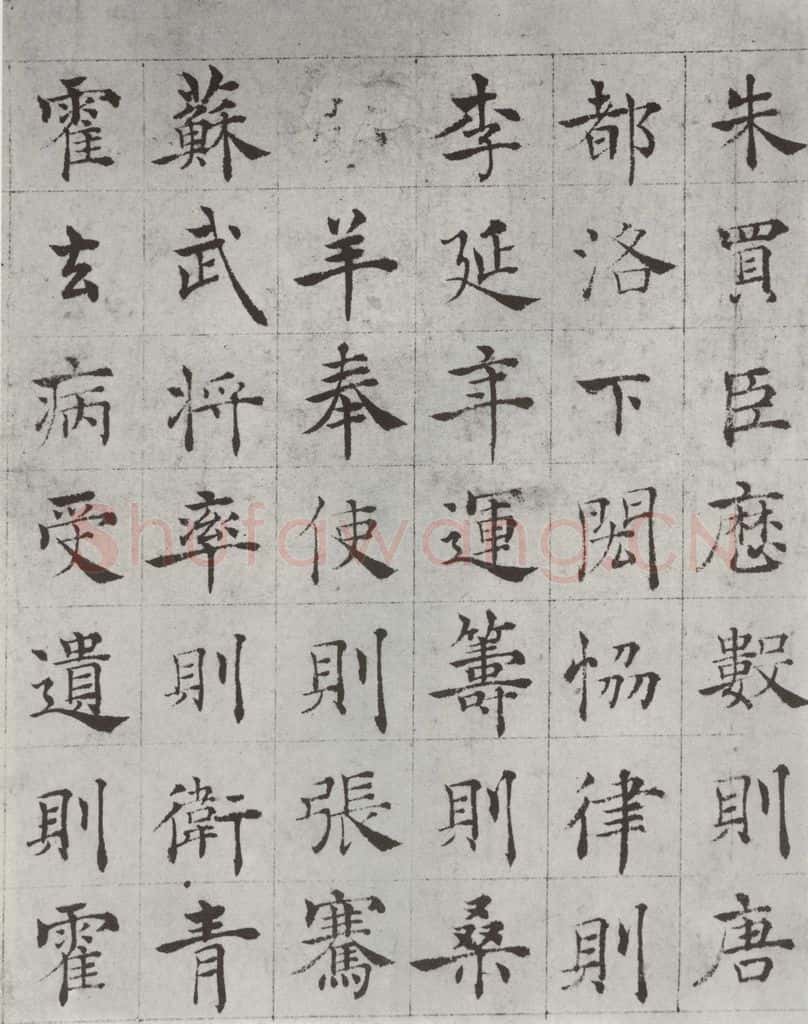 朱買臣歷數則唐
都洛下閎恊律則
李延年運籌則桑
羊奉使則張騫
蘇武将率則衛青
霍去病受遺則霍
Shufawang.CN